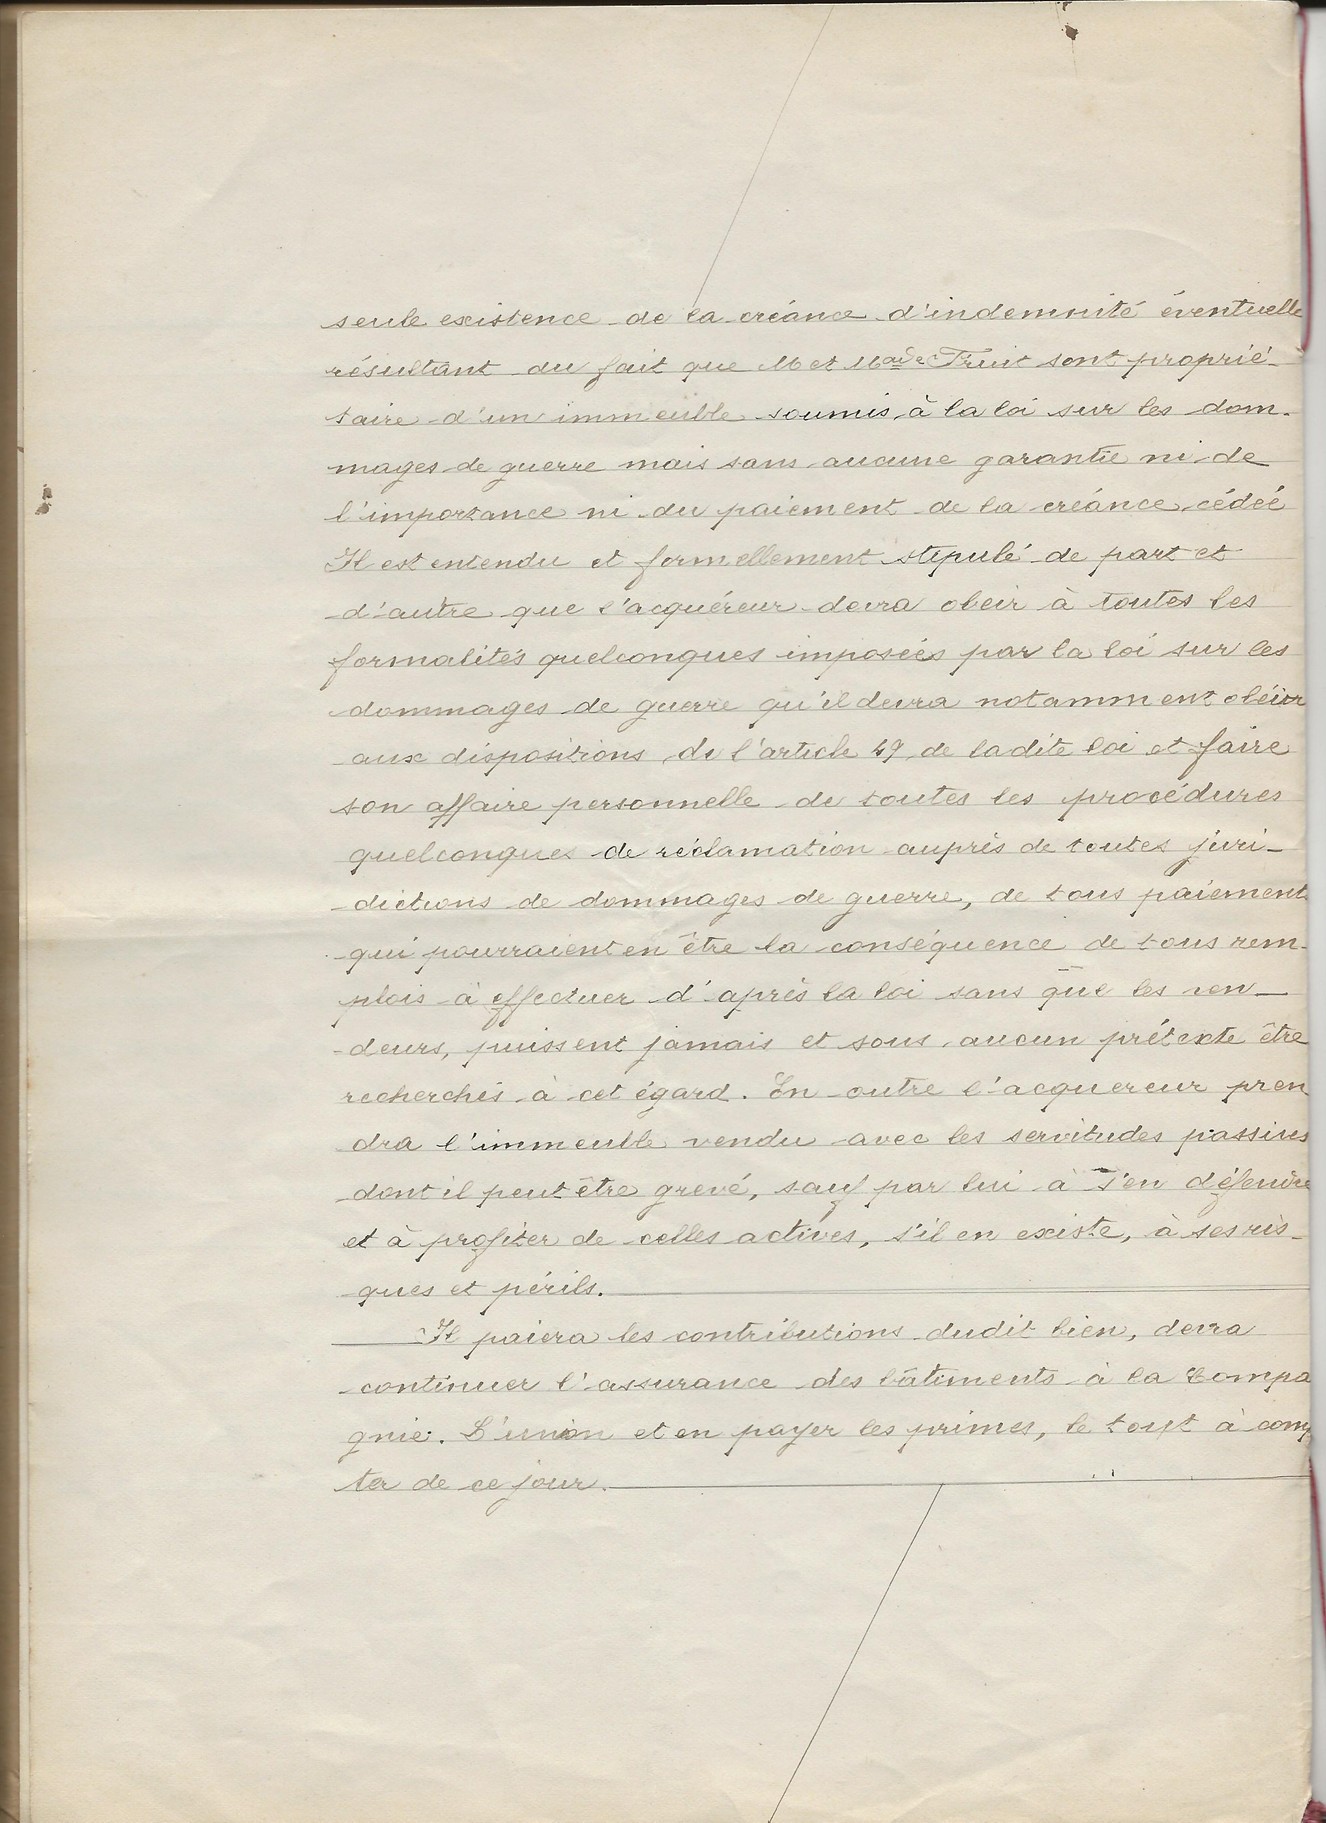 seule existence de la créance d'indemnité éventuelle
résultant du fait que M et Made Truit sont proprié-
taire d'un immeuble soumis à la loi sur les dom-
mages de guerre mais sans aucune garantie ni de
l'importance ni du paiement de la créance cédée
Il est entendu et formellement stipulé de part et
d'autre que l'acquéreur devra obeir à toutes les
formalités quelconques imposées par la loi sur les
dommages de guerre qu'il devra notamment obéir
aux dispositions de l'article 49 de ladite loi et faire
son affaire personnelle de toutes les procédures
quelconques de réclamation auprès de toutes juri-
dictions de dommages de guerre, de tous paiements
qui pourraient en être la conséquence de tous rem-
plois à effectuer d'après la loi sans que les ven-
deurs, puissent jamais et sous aucun prétexte être
recherchés à cet égard. En outre l'acquereur pren
dra l'immeuble vendu avec les servitudes passives
dont il peut être grevé, sauf par lui à s'en défendre
et à profiter de celles actives, s'il en existe, à ses ris-
ques et périls.
Il paiera les contributions dudit bien, devra
continuer l'assurance des bâtiments à la Compa
gnie. L'union et en payer les primes, le tout à comp
ter de ce jour.